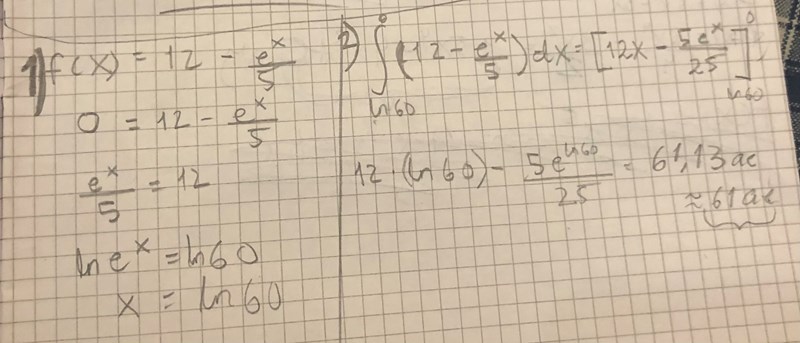 1) f(x) = 12 - e^x/5
0 = 12 - e^x/5
e^x/5 = 12
ln e^x = ln 60
x = ln 60
2) ∫_{ln 60}^{0} (12 - e^x/5) dx = [12x - 5e^x/25]_{ln 60}^{0}
12 · (ln 60) - 5e^{ln 60}/25 = 61,13 ae
≈ 61 ae